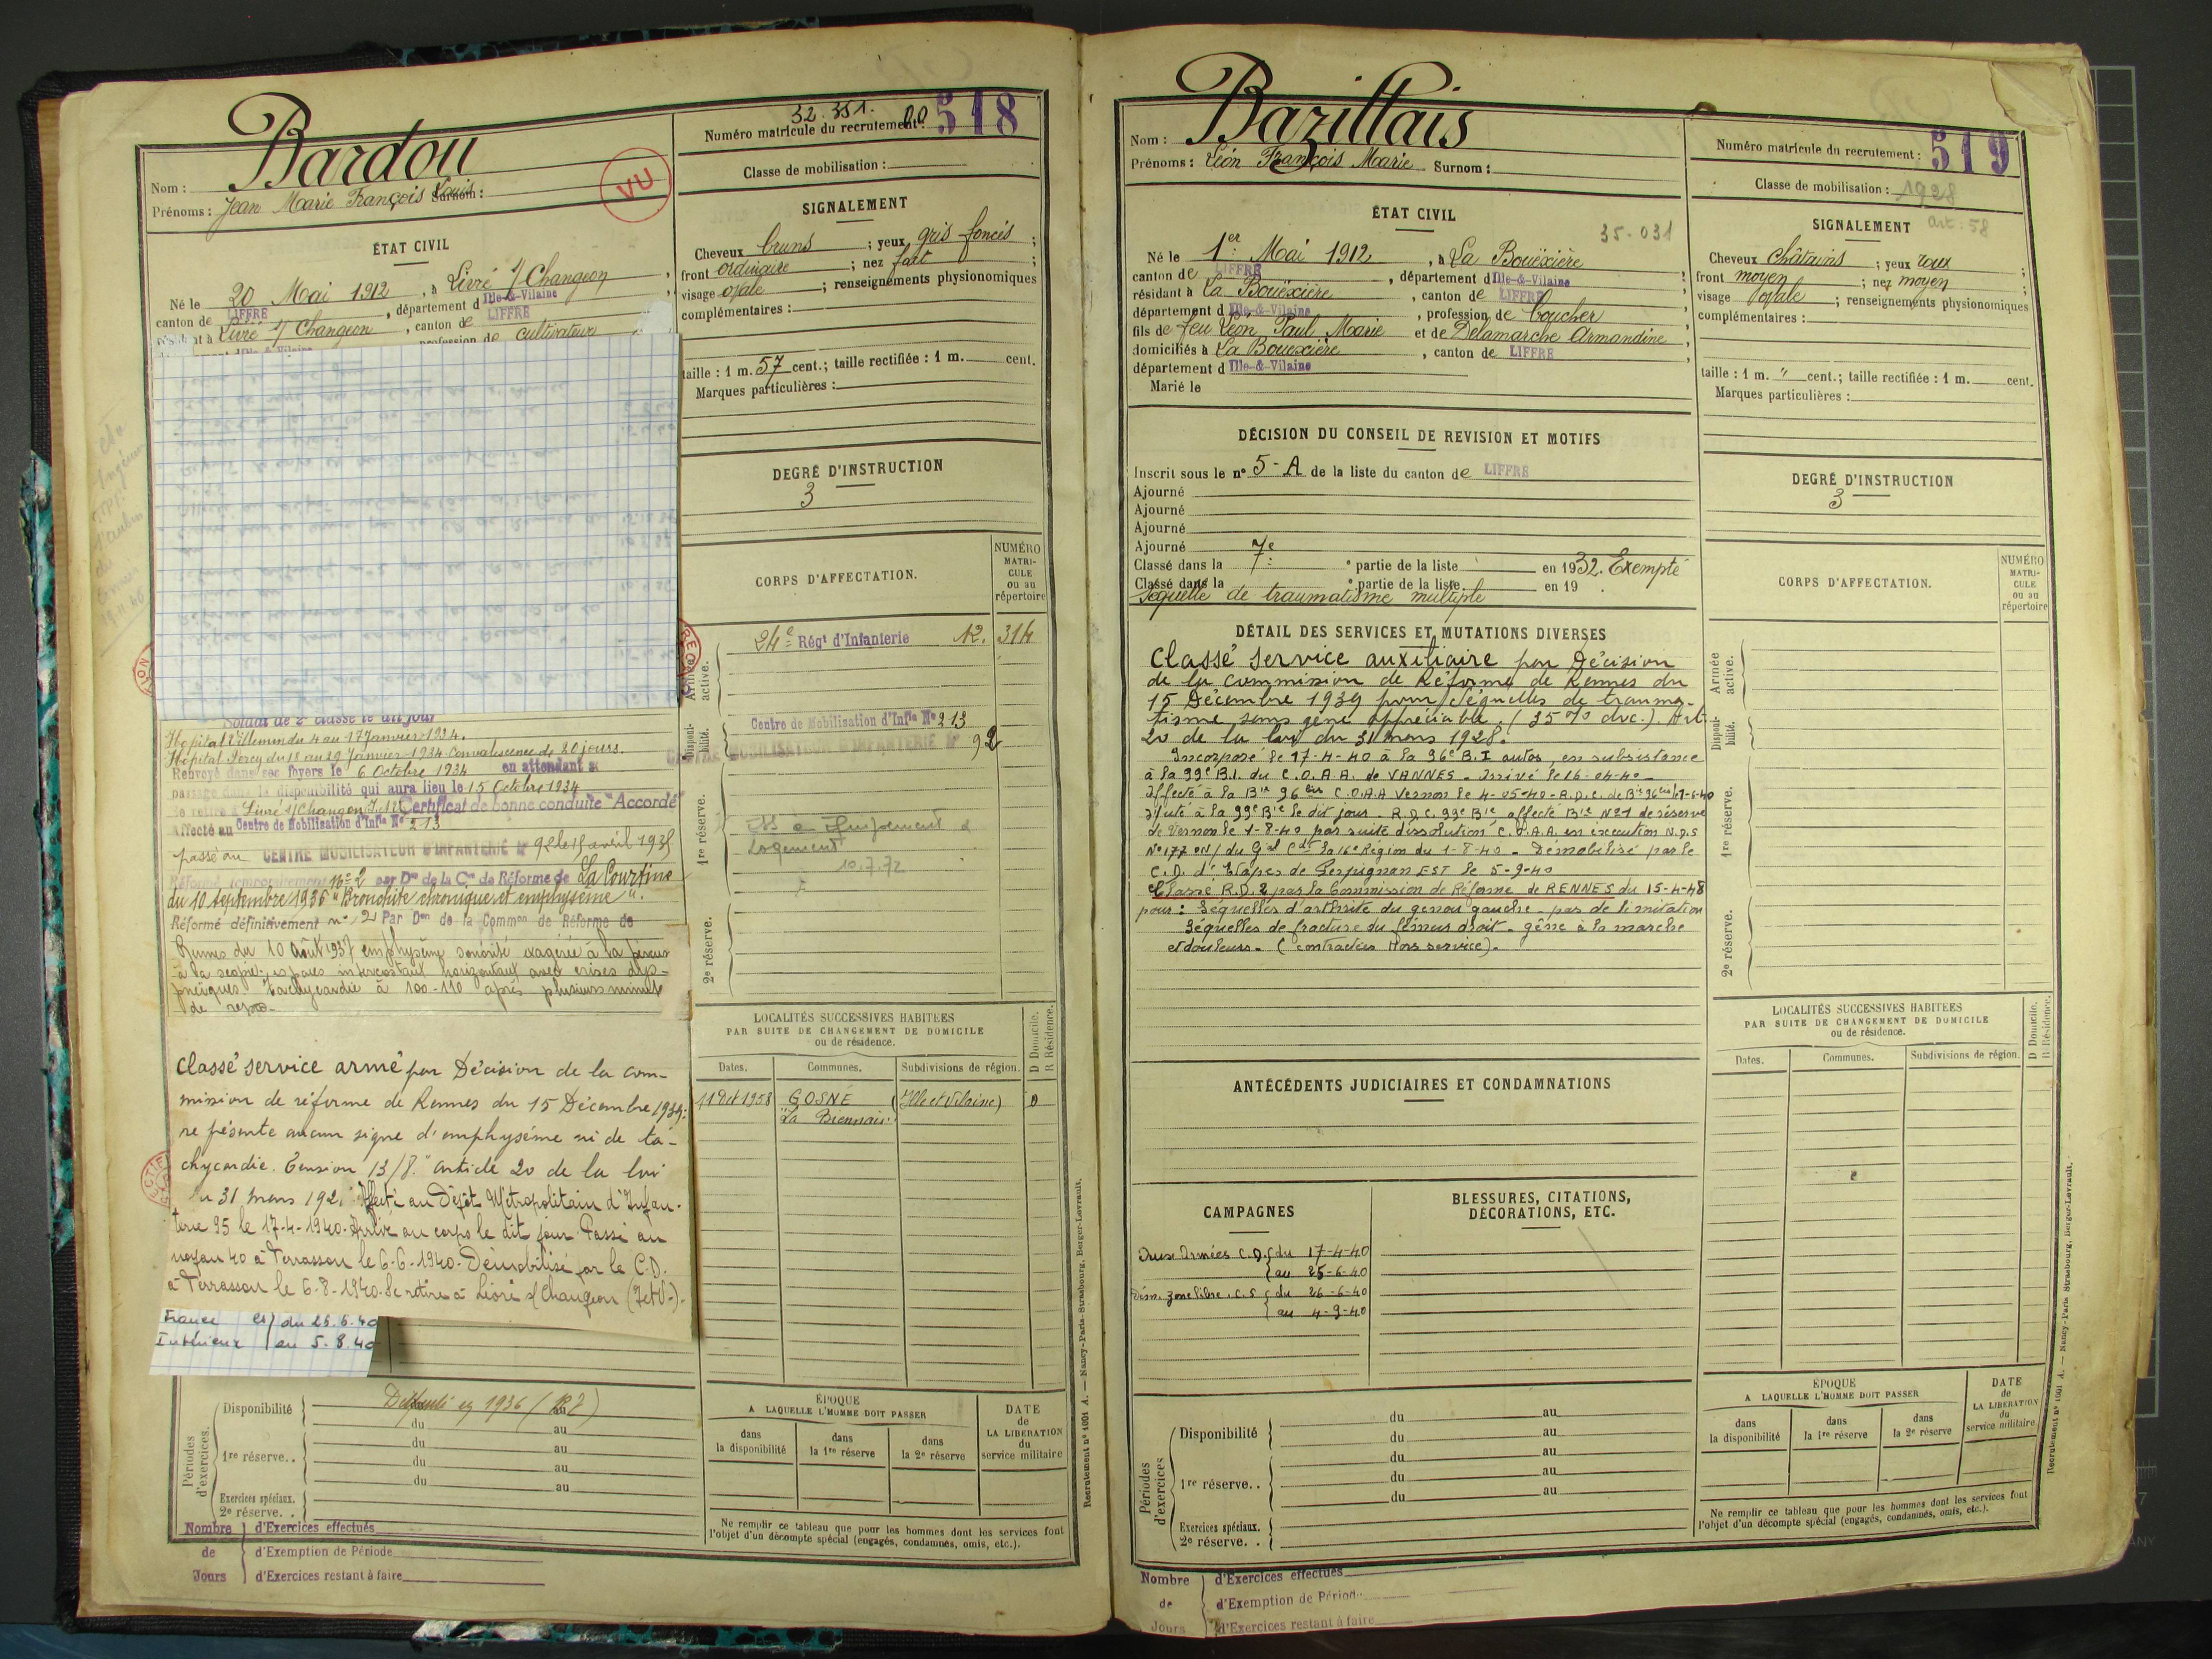 Bardou
Nom :
Prénoms : Jean Marie François Louis Surnom :
VU
ÉTAT CIVIL
Né le 20 Mai 1912, à Livré s/ Changeon,
canton de LIFFRÉ, département d Ille-&-Vilaine
résidant à Livré s/ Changeon, canton de LIFFRÉ
profession de cultivateur
Soldat de 2e classe le dit jour
Hopital Villemin du 4 au 17 Janvier 1934.
Hôpital Percy du 18 au 29 Janvier 1934. Convalescence de 20 jours.
Renvoyé dans ses foyers le 6 Octobre 1934 en attendant s
passage dans la disponibilité qui aura lieu le 15 Octobre 1934
Se retire à Livré s/Changeon I. & V. Certificat de bonne conduite "Accordé"
Affecté au Centre de Mobilisation d'Infie No 213
passé au CENTRE MOBILISATEUR D'INFANTERIE No 92 le 15 avril 1935
Réformé temporairement No 2 par Don de la Con de Réforme de La Courtine
du 10 septembre 1936 "Bronchite chronique et emphysème".
Réformé définitivement no 2 Par Don de la Common de Réforme de
Rennes du 10 Août 1937 emphysème sonorité exagérée à la percus
à la scopie. espaces intercostaux horizontaux avec crises dys-
pnéiques. tachycardie à 100-110 après plusieurs minute
de repos.
Classé service armé par Décision de la com-
mission de réforme de Rennes du 15 Décembre 1939:
ne présente aucun signe d'emphysème ni de ta-
chycardie. Tension 13/8." article 20 de la loi
du 31 mars 192. Affecté au Dépôt Métropolitain d'Infan-
terie 95 le 17-4-1940. Arrivé au corps le dit jour. Passé au
noyau 40 à Terrasson le 6-6-1940. Démobilisé par le C.D.
à Terrasson le 6-8-1940. Se retire à Livré s/Changeon (I et V.).
France cs ) du 25.6.40
Intérieur ( au 5.8.40
Périodes d'exercices.
Disponibilité Dispensé en 1936 (R2)
du au
1re réserve.. du au
du au
du au
Exercices spéciaux.
2e réserve. .
Nombre de Jours
d'Exercices effectués
d'Exemption de Période
d'Exercices restant à faire
32.351.
Numéro matricule du recrutement : 518
Classe de mobilisation :
SIGNALEMENT
Cheveux bruns ; yeux gris foncés ;
front ordinaire ; nez fort ;
visage ovale ; renseignements physionomiques
complémentaires :
taille : 1 m. 57 cent.; taille rectifiée : 1 m. cent.
Marques particulières :
DEGRÉ D'INSTRUCTION
3
CORPS D'AFFECTATION.
NUMÉRO MATRICULE ou au répertoire
Armée active.
24e Régt d'Infanterie 12. 314
Disponibilité.
Centre de Mobilisation d'Infie No 213
CENTRE MOBILISATEUR D'INFANTERIE No 92
1re réserve.
Logement
10.7.72
2e réserve.
LOCALITÉS SUCCESSIVES HABITÉES
PAR SUITE DE CHANGEMENT DE DOMICILE
ou de résidence.
D Domicile. R Résidence.
Dates. Communes. Subdivisions de région.
11 Oct 1958 GOSNÉ (Ille et Vilaine) D
"La Biennais"
ÉPOQUE
A LAQUELLE L'HOMME DOIT PASSER
dans la disponibilité
dans la 1re réserve
dans la 2e réserve
DATE de LA LIBERATION du service militaire
Ne remplir ce tableau que pour les hommes dont les services font
l'objet d'un décompte spécial (engagés, condamnés, omis, etc.).
Recrutement no 1001 A. — Nancy-Paris-Strasbourg, Berger-Levrault.
Bazillais
Nom :
Prénoms : Léon François Marie Surnom :
ÉTAT CIVIL
35-031
Né le 1er Mai 1912, à La Bouëxière
canton de LIFFRÉ, département d Ille-&-Vilaine ;
résidant à La Bouëxière, canton de LIFFRÉ
département d Ille-&-Vilaine, profession de boucher
fils de feu Léon Paul Marie et de Delamarche Armandine,
domiciliés à La Bouexière, canton de LIFFRÉ,
département d Ille-&-Vilaine
Marié le
DÉCISION DU CONSEIL DE REVISION ET MOTIFS
Inscrit sous le no 5-A de la liste du canton de LIFFRÉ
Ajourné
Ajourné
Ajourné
Ajourné
Classé dans la 7e partie de la liste en 1932. Exempté
Classé dans la partie de la liste en 19 .
Séquelle de traumatisme multiple
DÉTAIL DES SERVICES ET MUTATIONS DIVERSES
Classé service auxiliaire par Décision
de la commission de Réforme de Rennes du
15 Décembre 1939 pour séquelles de trauma-
tisme sans gêne appréciable. (35 % dvc.). Art.
20 de la loi du 31 mars 1928.
Incorporé le 17-4-40 à la 96e B.I autos, en subsistance
à la 99e B.I. du C.O.A.A. de VANNES - Arrivé le 16-04-40
affecté à la Bie 96 bis C.O.A.A Vernon le 4-05-40 - R.D.C. de Bie 96 bis 17-6-40
Muté à la 99e Bie le dit jour - R.D.C. 99e Bie affecté Bie No1 de réserve
de Vernon le 1-8-40 par suite dissolution C.O.A.A. en execution N.D.S
No 177 ON/ du Gal Cdt la 16e Région du 1-8-40 - Démobilisé par le
C.D. d'Etapes de Perpignan EST le 5-9-40
Classé R.D.2 par la Commission de Réforme de RENNES du 15-4-48
pour : Séquelles d'arthrite du genou gauche - pas de limitation
Séquelles de fracture du fémur droit - gêne à la marche
et douleurs - (contractées Hors service).
ANTÉCÉDENTS JUDICIAIRES ET CONDAMNATIONS
CAMPAGNES
Aux Armées C.D. ( du 17-4-40
( au 25-6-40
Dém. zone libre . C.S ( du 26-6-40
( au 4-9-40
BLESSURES, CITATIONS,
DÉCORATIONS, ETC.
Périodes d'exercices
Disponibilité du au
du au
1re réserve.. du au
du au
du au
Exercices spéciaux.
2e réserve. .
Nombre de Jours
d'Exercices effectués
d'Exemption de Période
d'Exercices restant à faire
Numéro matricule du recrutement : 519
Classe de mobilisation : 1928
art : 58
SIGNALEMENT
Cheveux châtains ; yeux roux ;
front moyen ; nez moyen ;
visage ovale ; renseignements physionomiques
complémentaires :
taille : 1 m. " cent.; taille rectifiée : 1 m. cent.
Marques particulières :
DEGRÉ D'INSTRUCTION
3
CORPS D'AFFECTATION.
NUMÉRO MATRICULE ou au répertoire
Armée active.
Disponibilité.
1re réserve.
2e réserve.
LOCALITÉS SUCCESSIVES HABITÉES
PAR SUITE DE CHANGEMENT DE DOMICILE
ou de résidence.
D Domicile. R Résidence.
Dates. Communes. Subdivisions de région.
ÉPOQUE
A LAQUELLE L'HOMME DOIT PASSER
dans la disponibilité
dans la 1re réserve
dans la 2e réserve
DATE de LA LIBERATION du service militaire
Ne remplir ce tableau que pour les hommes dont les services font
l'objet d'un décompte spécial (engagés, condamnés, omis, etc.).
Recrutement no 1001 A. — Nancy-Paris-Strasbourg, Berger-Levrault.